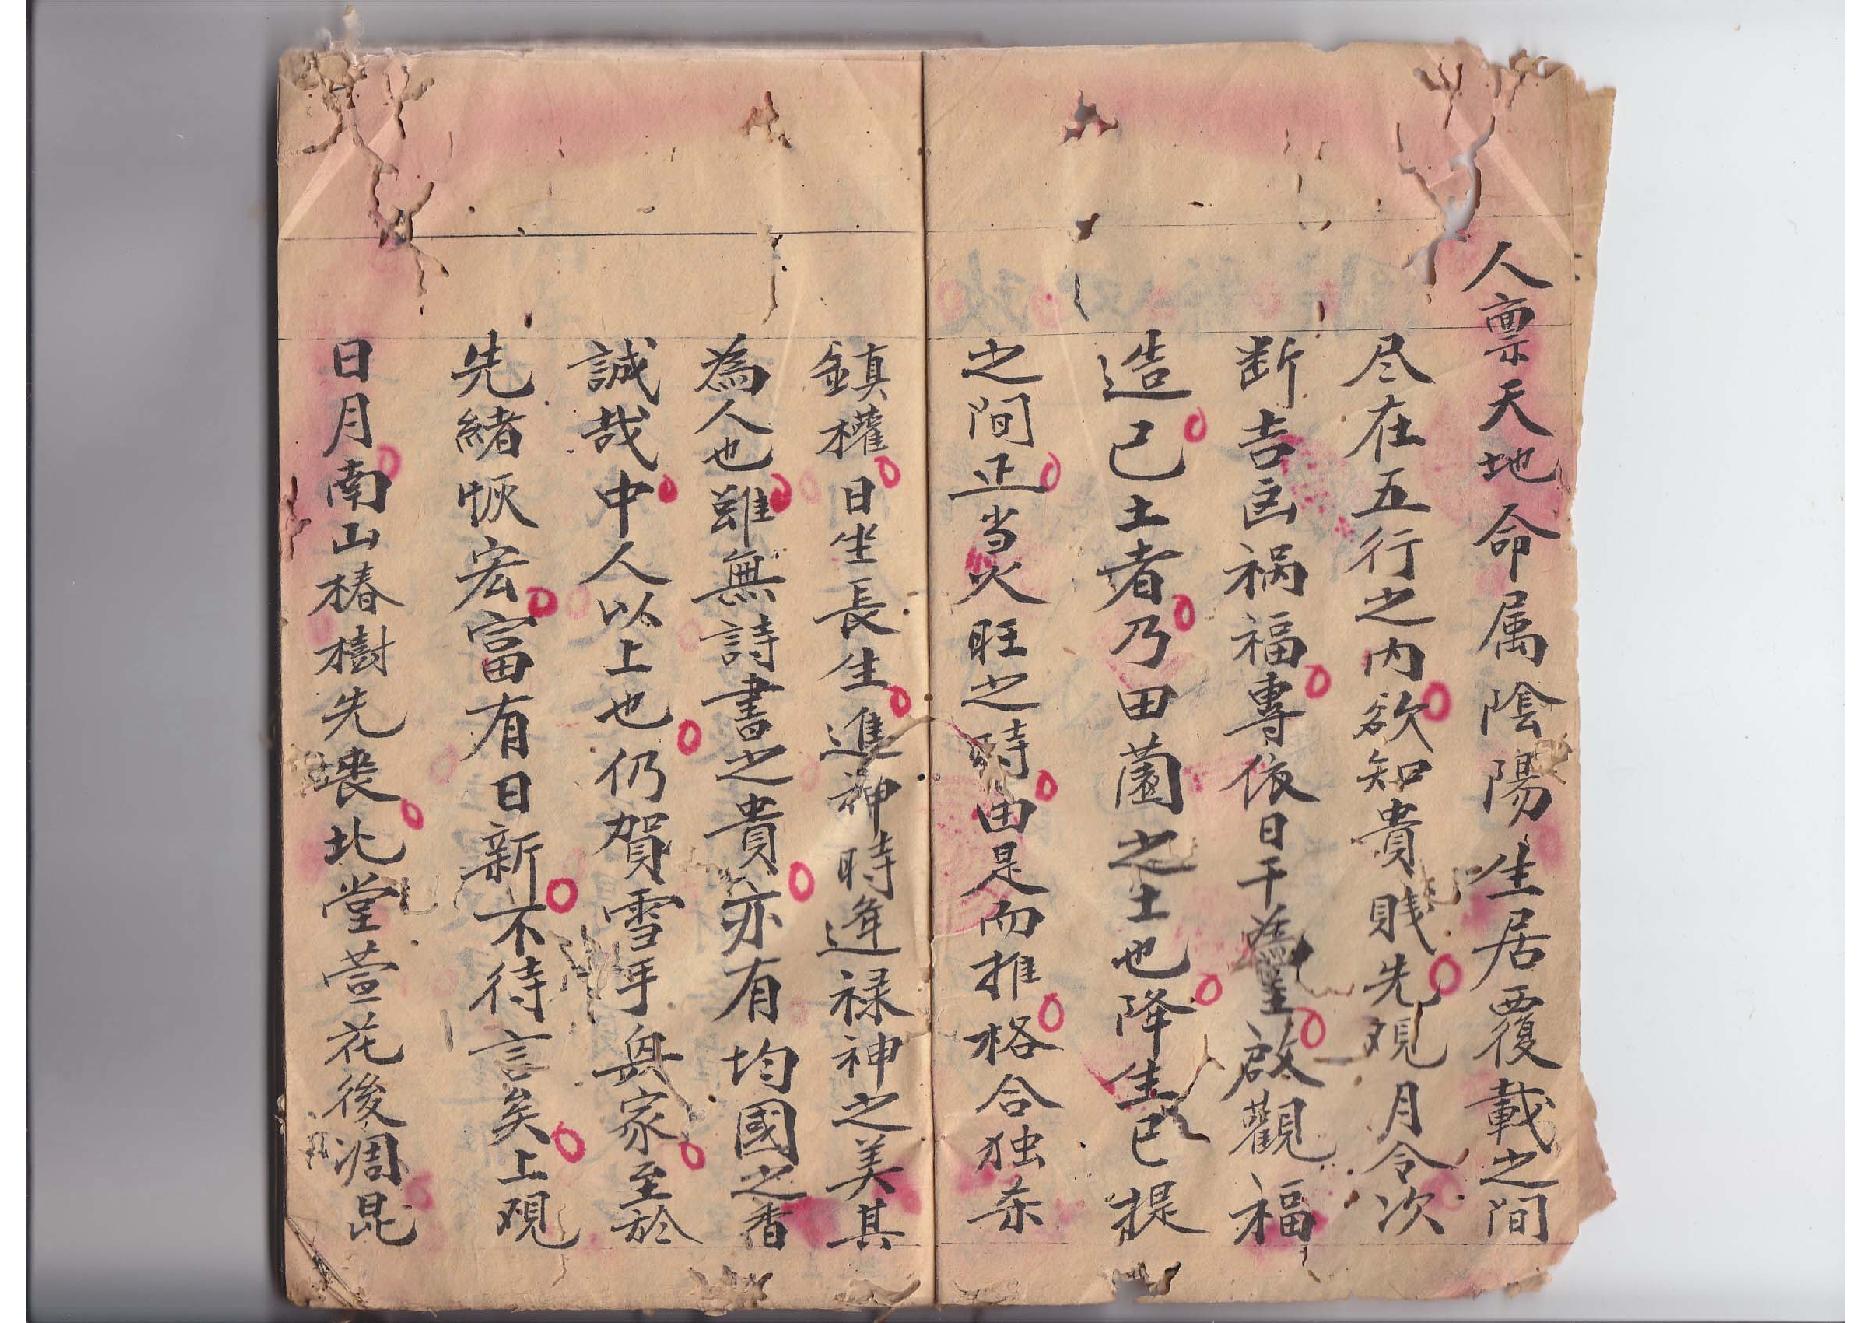 人禀天地命属陰陽生居覆載之間
尽在五行之内欲知貴賎先观月令次
断吉凶祸福專依日干為主啟觀福
造己土者乃田薗之土也降生巳提
之间正当火旺之時由是而推格合独杀
鎮權日坐長生進神時逢禄神之美其
為人也雖無詩書之貴亦有均國之香
誠哉中人以上也仍賀雪手兴家至於
先緒恢宏富有日新不待言矣上观
日月南山椿樹先喪北堂萱花後凋昆